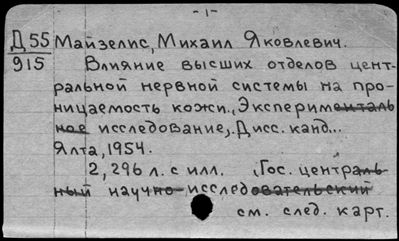 - 1 -
Д 55 Майзелис, Михаил Яковлевич.
915 Влияние высших отделов цент-
ральной нервной системы на про-
ницаемость кожи., Эксперименталь
ное исследование,. Дисс. канд...
Ялта, 1954.
2, 296 л. с илл. „Гос. централь-
ный научно-исследовательский
см. след. карт.